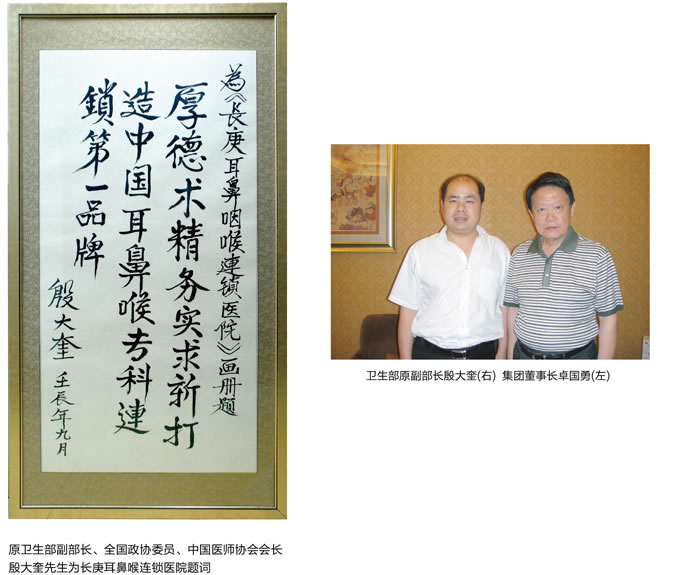 为《长庚耳鼻咽喉連锁医院》画册题
厚德术精务实求新打
造中国耳鼻喉专科連
鎖第一品牌
殷大奎 壬辰年九月
卫生部原副部长殷大奎(右) 集团董事长卓国勇(左)
原卫生部副部长、全国政协委员、中国医师协会会长
殷大奎先生为长庚耳鼻喉连锁医院题词